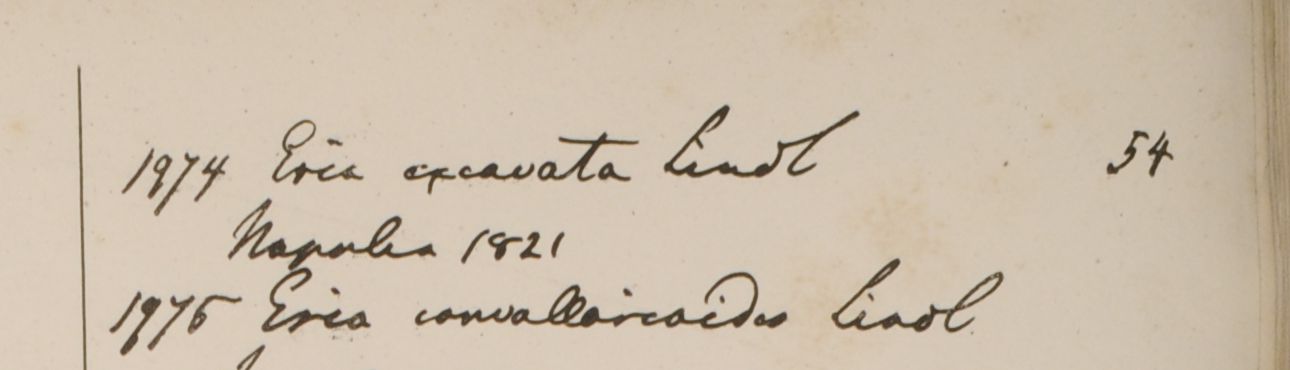 1974 Eria excavata Lindl 54
Napulia 1821
1975 Eria convallarioides Lindl